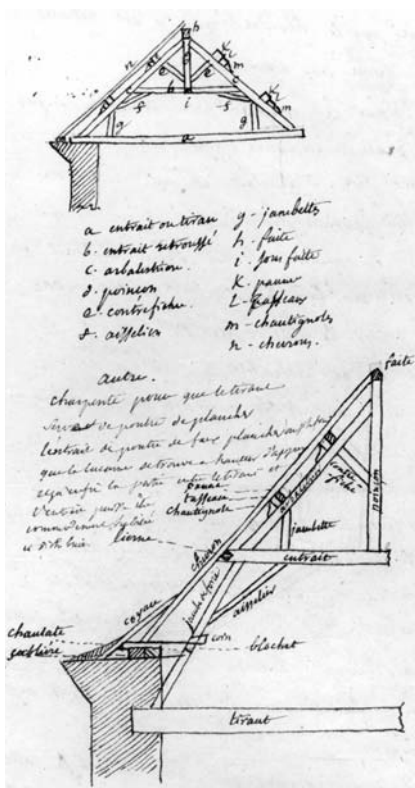 h
n
e
e
K
L
m
K
L
m
b
i
f
f
g
g
a
a entrait ou tiran
b. entrait retroussé
c. arbalestrion
d. poinçon
e. contrefiche.
f. aisselier
g. jambettes
h. faite
i. sous faite
K. panne
L. tasseaux
m. chautignoles
n. chevrons.
autre.
charpente pour que le tirant
servant de poutre de plancher
l'entrait de poutre de faux plancher
que la lucarne se trouve a hauteur d'appui
la partie entre le tirant et
l'entrait
commodement
faite
poinçon
contrefiche
arbalestrion
panne
tasseau
chautignole
jambette
lierne
chevron
entrait
jambe de force
aisselier
coyau
chaulate
sablière
corn
blochet
tirant